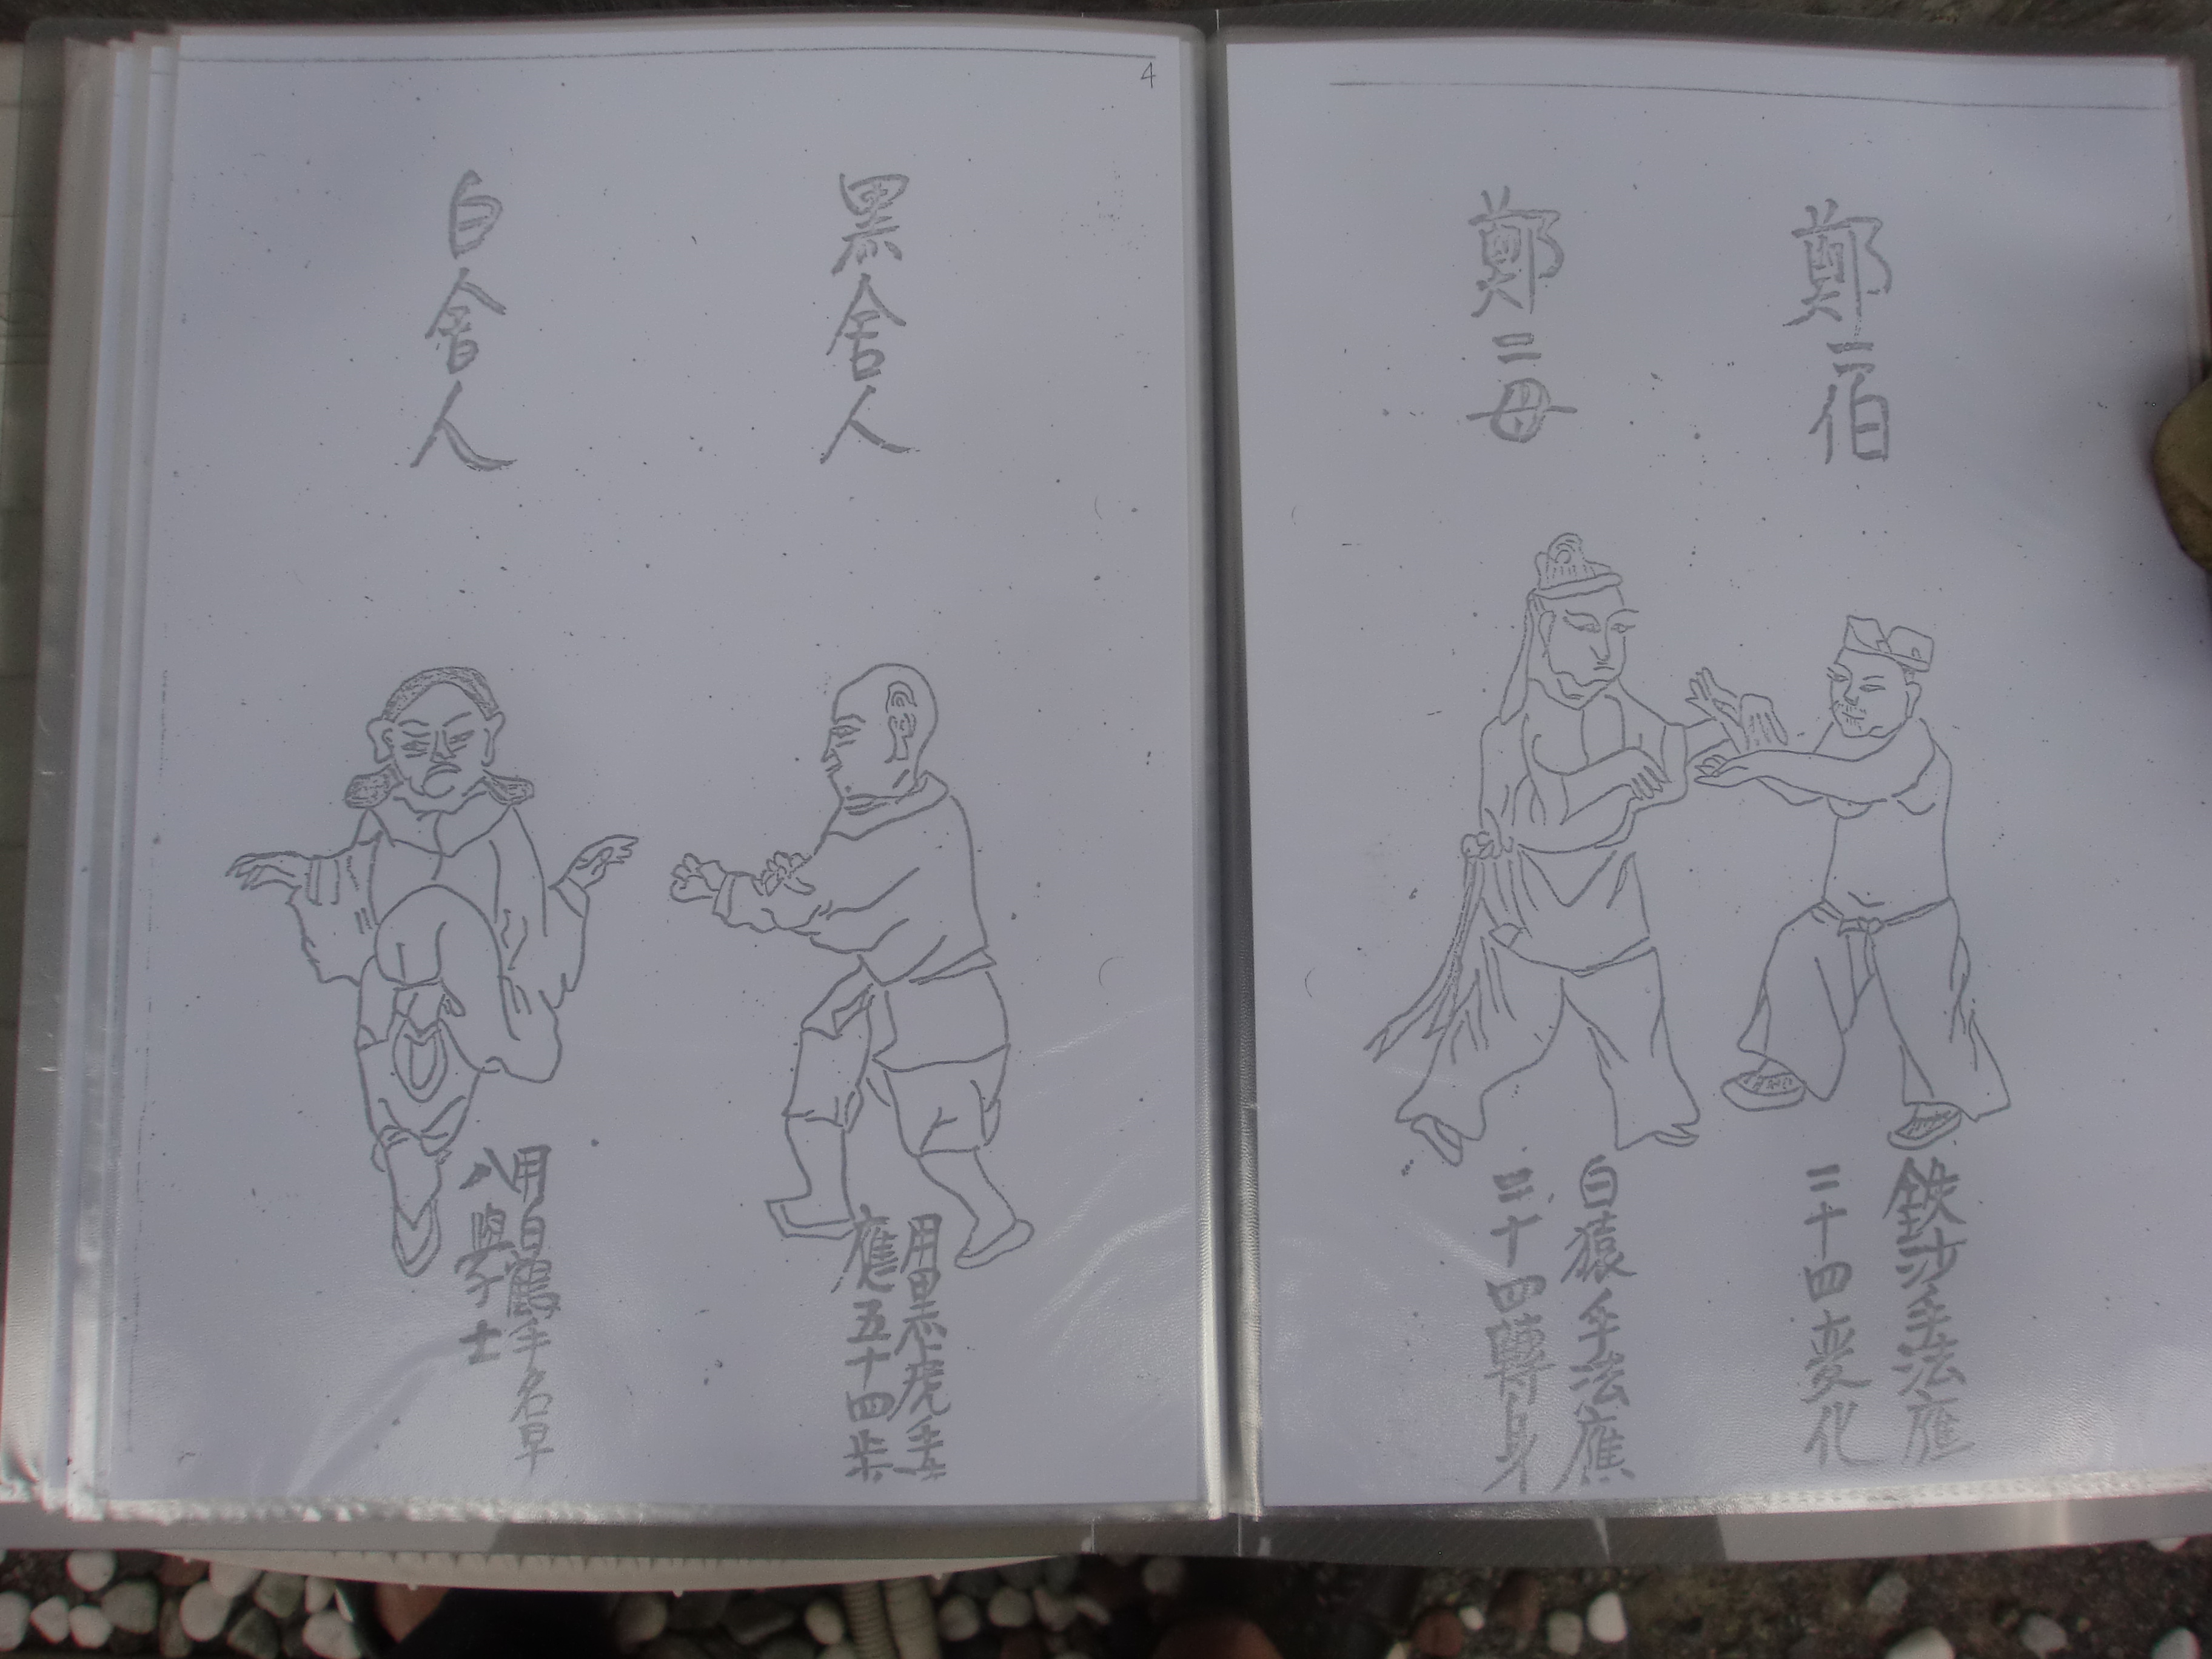 鄭二伯
鄭二母
鉄沙手法應
二十四变化
白猿手法應
三十四轉身
4
黑舍人
白舍人
用黑虎手
應五十四步
用白鶴手名早
八與子士